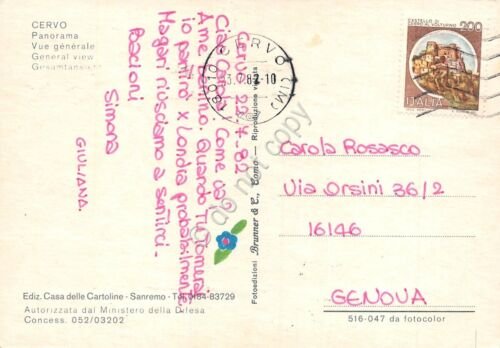 CERVO
Panorama
Vue générale
General view
Gesamtansicht
Cervo 22-7-82
Ciao Carola, Come va?
A me bene. Quando tu tornerai
io partirò x Londra probabilmente
Magari riusciamo a sentirci.
Bacioni
Simona
GIULIANA.
18010 CERVO (IM)
3.7.82-10
CASTELLO DI
CERRO AL VOLTURNO
200
ITALIA
Carola Rosasco
Via Orsini 36/2
16146
GENOVA
Fotoedizioni Brunner & C., Como - Riproduzione vietata
do not copy
Ediz. Casa delle Cartoline - Sanremo - Tel. 0184-83729
Autorizzata dal Ministero della Difesa
Concess. 052/03202
516-047 da fotocolor